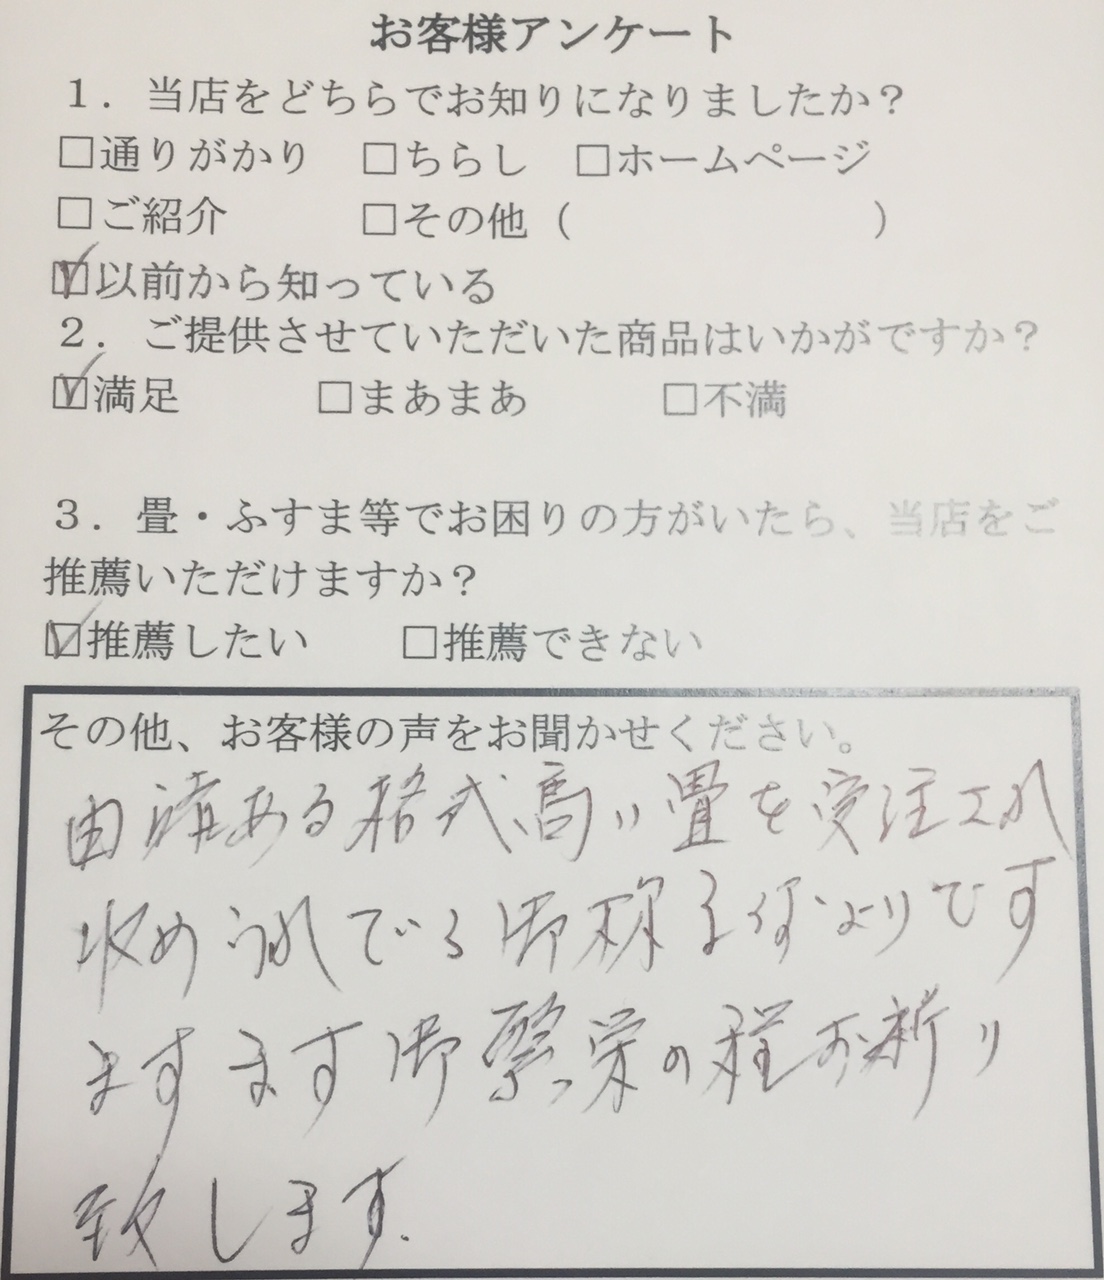 お客様アンケート
１．当店をどちらでお知りになりましたか？
□通りがかり □ちらし □ホームページ
□ご紹介 □その他（ ）
☑以前から知っている
２．ご提供させていただいた商品はいかがですか？
☑満足 □まあまあ □不満
３．畳・ふすま等でお困りの方がいたら、当店をご
推薦いただけますか？
☑推薦したい □推薦できない
その他、お客様の声をお聞かせください。
由緒ある格式高い畳を受注され
収められている御様子何よりです
ますます御繁栄の程お祈り
致します.